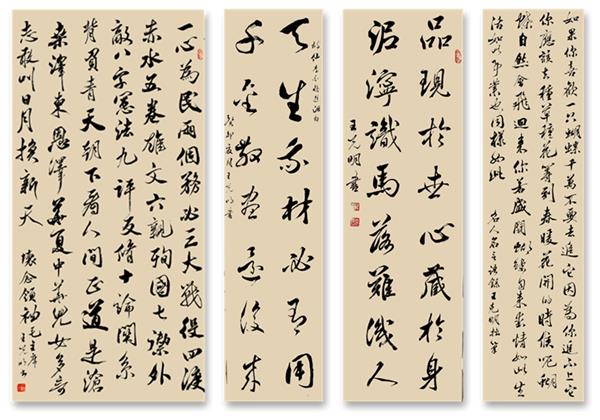 一心為民兩個務必三大戰役四渡
赤水五卷雄文六親殉國七外
敵八字憲法九評反修十論關系
背負青天朝下看人間正道是滄
桑澤東恩澤華夏中華兒女多奇
志敢叫日月換新天 懷念領袖毛主席
王克明書
天生我材必有用
千金散盡還復來
癸卯夏月王克明書
品現於世心藏於身
泥濘識馬落難識人
王克明書
如果你喜歡一只蝴蝶千萬不要去追它因為你追不上它
你應該去種草種花等到春暖花開的時候呢蝴
蝶自然會飛回來你若盛開蝴蝶自來愛情如此生
活如此事業也同樣如此 名人名言 王克明